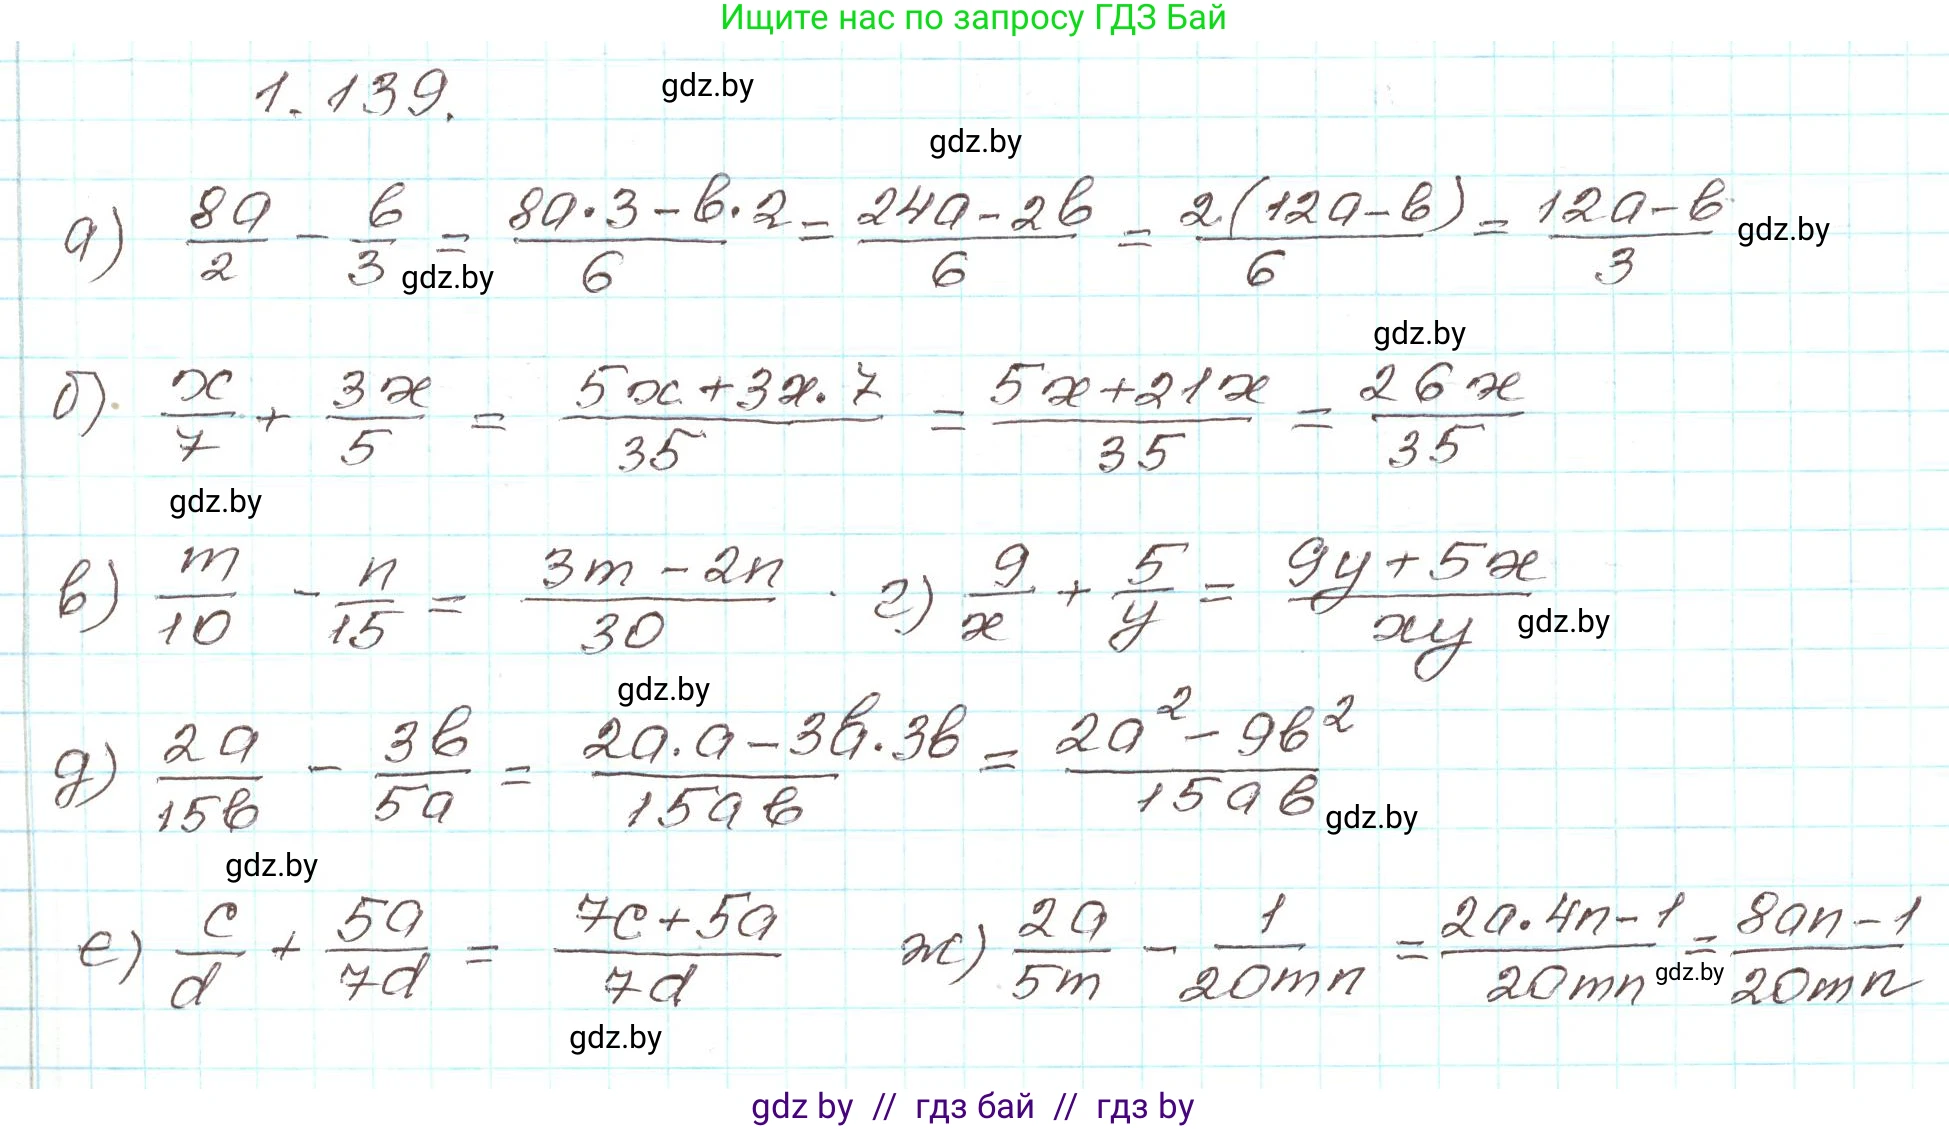 Ищите нас по запросу ГДЗ Бай
1.139.
gdz.by
gdz.by
а) 8a/2 - b/3 = (8a·3-b·2)/6 = (24a-2b)/6 = 2(12a-b)/6 = (12a-b)/3
gdz.by
gdz.by
gdz.by
б) x/7 + 3x/5 = (5x+3x·7)/35 = (5x+21x)/35 = 26x/35
gdz.by
в) m/10 - n/15 = (3m-2n)/30. г) 9/x + 5/y = (9y+5x)/xy
gdz.by
gdz.by
д) 2a/15b - 3b/5a = (2a·a-3b·3b)/15ab = (2a²-9b²)/15ab
gdz.by
gdz.by
е) c/d + 5a/7d = (7c+5a)/7d ж) 2a/5m - 1/20mn = (2a·4n-1)/20mn = (8an-1)/20mn
gdz.by
gdz.by
gdz by // гдз бай // гдз by